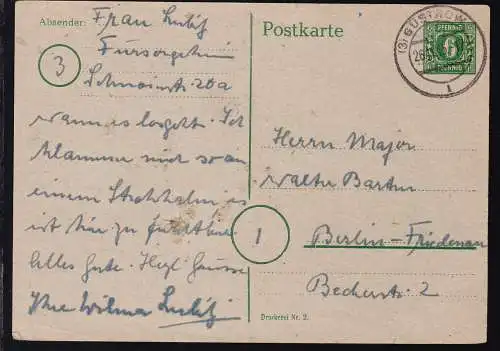 Absender: Frau Lentz
Fürsorgeheim
3
20a
Postkarte
(3) GÜSTROW
1
PFENNIG
6
PFENNIG
wann es losgeht. Ich
klammere mich so an
einem Strohhalm es
ist hier zu furchtbar
Alles Gute. Herzl Grüsse
Ihre Wilma
Herrn Major
Walter Barten
1
Berlin-Friedenau
Beckerstr. 2
Druckerei Nr. 2.